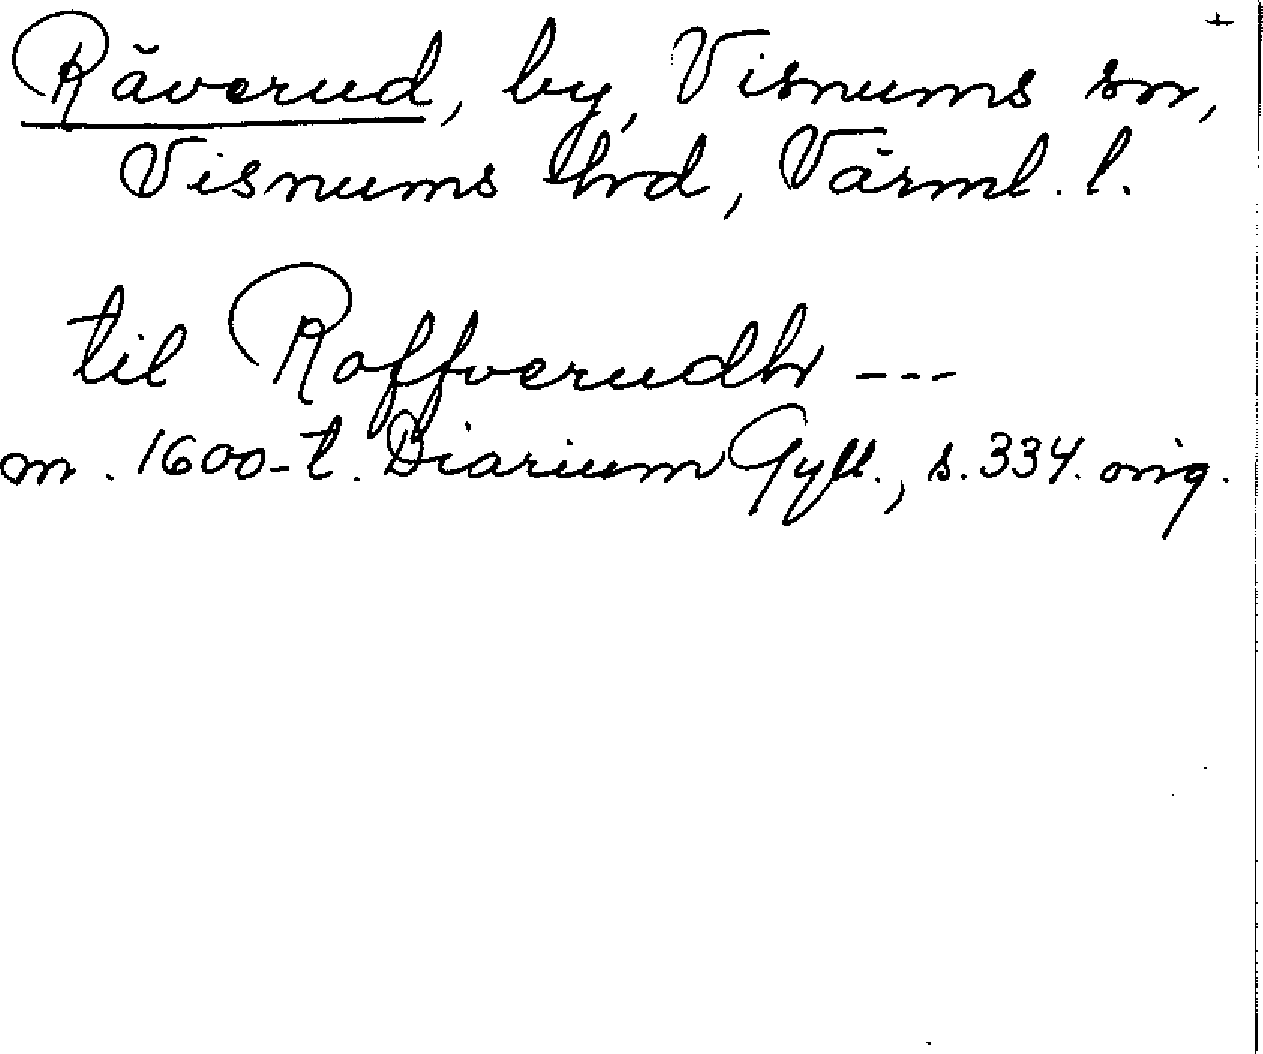 Räverud, by, Visnums sn,
Visnums hrd, Värml. l.
til Roffverudh ---
m. 1600-t. Diarium Gyll., s. 334. orig.